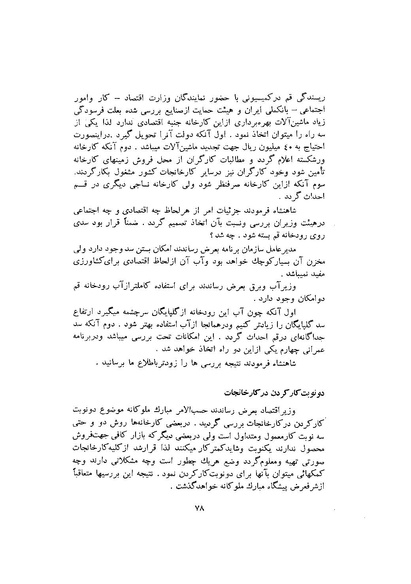 ریسندگی قم در کمیسیونی با حضور نمایندگان وزارت اقتصاد – کار وامور
اجتماعی – بانکملی ایران و هیئت حمایت ازصنایع بررسی شده بعلت فرسودگی
زیاد ماشین‌آلات بهره‌برداری ازاین کارخانه جنبه اقتصادی ندارد لذا یکی از
سه راه را میتوان اتخاذ نمود . اول آنکه دولت آنرا تحویل گیرد . دراینصورت
احتیاج به ۴۰ میلیون ریال جهت تجدید ماشین‌آلات میباشد . دوم آنکه کارخانه
ورشکسته اعلام گردد و مطالبات کارگران از محل فروش زمینهای کارخانه
تأمین شود وخود کارگران نیز درسایر کارخانجات کشور مشغول بکار گردند.
سوم آنکه ازاین کارخانه صرفنظر شود ولی کارخانه نساجی دیگری در قسم
احداث گردد .
شاهنشاه فرمودند جزئیات امر از هرلحاظ چه اقتصادی و چه اجتماعی
درهیئت وزیران بررسی ونسبت بآن اتخاذ تصمیم گردد . ضمناً قرار بود سدی
روی رودخانه قم بسته شود . چه شد ؟
مدیرعامل سازمان برنامه بعرض رساندند امکان بستن سد وجود دارد ولی
مخزن آن بسیار کوچک خواهد بود وآب آن ازلحاظ اقتصادی برای کشاورزی
مفید نمیباشد .
وزیر آب وبرق بعرض رساندند برای استفاده کاملتر ازآب رودخانه قم
دوامکان وجود دارد .
اول آنکه چون آب این رودخانه ازگلپایگان سرچشمه میگیرد ارتفاع
سد گلپایگان را زیادتر کنیم ودرهمانجا ازآب استفاده بهتر شود . دوم آنکه سد
جداگانه‌ای درقم احداث گردد . این امکانات تحت بررسی میباشد ودربرنامه
عمرانی چهارم یکی ازاین دو راه اتخاذ خواهد شد .
شاهنشاه فرمودند نتیجه بررسی ها را زودتر باطلاع ما برسانید .
دونوبت کار کردن در کارخانجات
وزیر اقتصاد بعرض رساندند حسب‌الامر مبارک ملوکانه موضوع دونوبت
کار کردن در کارخانجات بررسی گردید . دربعضی کارخانه‌ها روش دو و حتی
سه نوبت کار معمول ومتداول است ولی دربعضی دیگر که بازار کافی جهت فروش
محصول ندارند یکنوبت وشاید کمتر کار میکنند لذا قرارشد از کلیه کارخانجات
صورتی تهیه ومعلوم گردد وضع هریک چطور است وچه مشکلاتی دارند وچه
کمکهائی میتوان بآنها برای دونوبت کار کردن نمود . نتیجه این بررسیها متعاقباً
ازشرفعرض پیشگاه مبارک ملوکانه خواهد گذشت .
۷۸